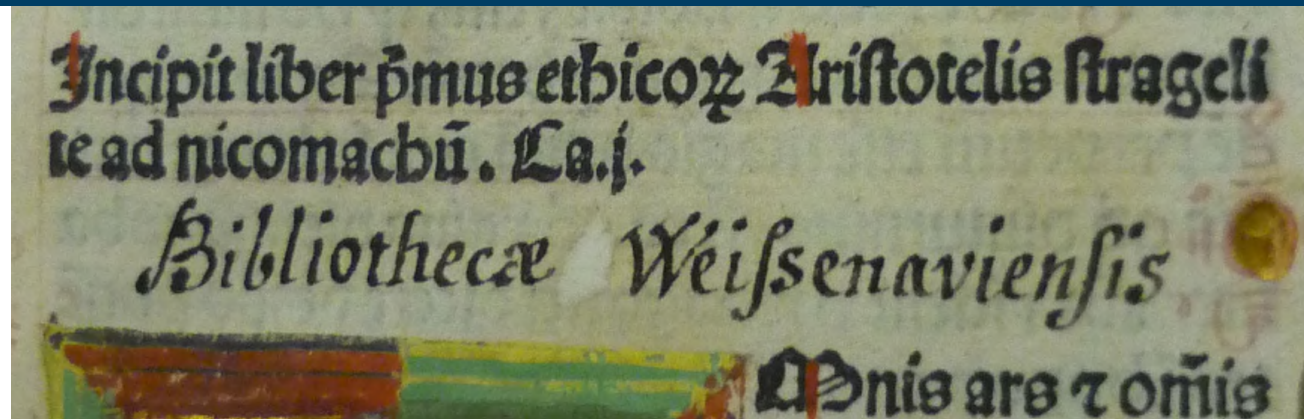 Incipit liber p̄mus ethicoꝝ Aristotelis strageli
te ad nicomachū. Ca.j.
Bibliothecæ Weiſsenavienſis
Mnis ars ⁊ om̄is